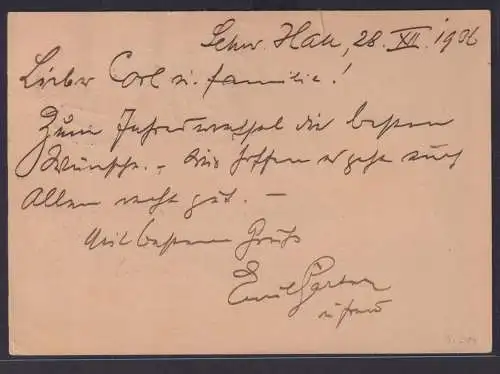 Schw. Hall, 28. XII. 1936
Lieber Carl u. Familie!
Zum Jahreswechsel die besten
Wünsche. – Wir hoffen es geht euch
Allen recht gut. –
Mit bestem Gruß
Emil Gärtner
u. Frau